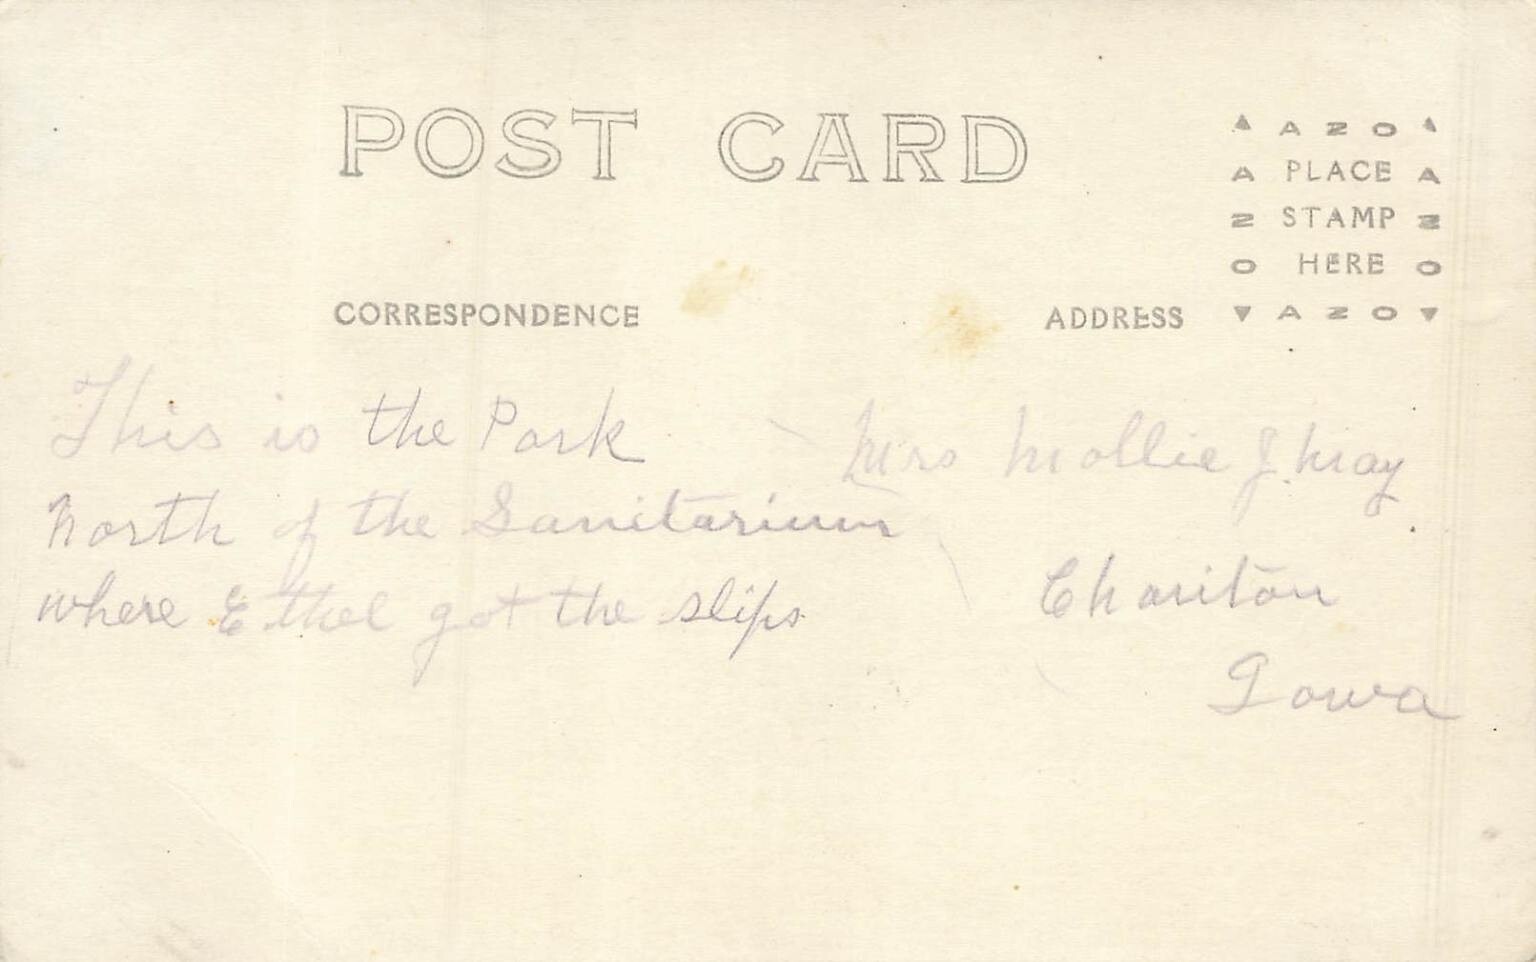 POST CARD
A Z O
A PLACE A
Z STAMP Z
O HERE O
A Z O
CORRESPONDENCE
ADDRESS
This is the Park
North of the Sanitarium
where Ethel got the slips
Mrs Mollie J. May
Chariton
Iowa